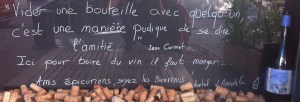 "Vider une bouteille avec quelqu'un,
c'est une manière pudique de se dire
l'amitié... " Jean Carmet.
Ici pour boire du vin il faut manger...
Amis épicuriens, soyez les Bienvenus